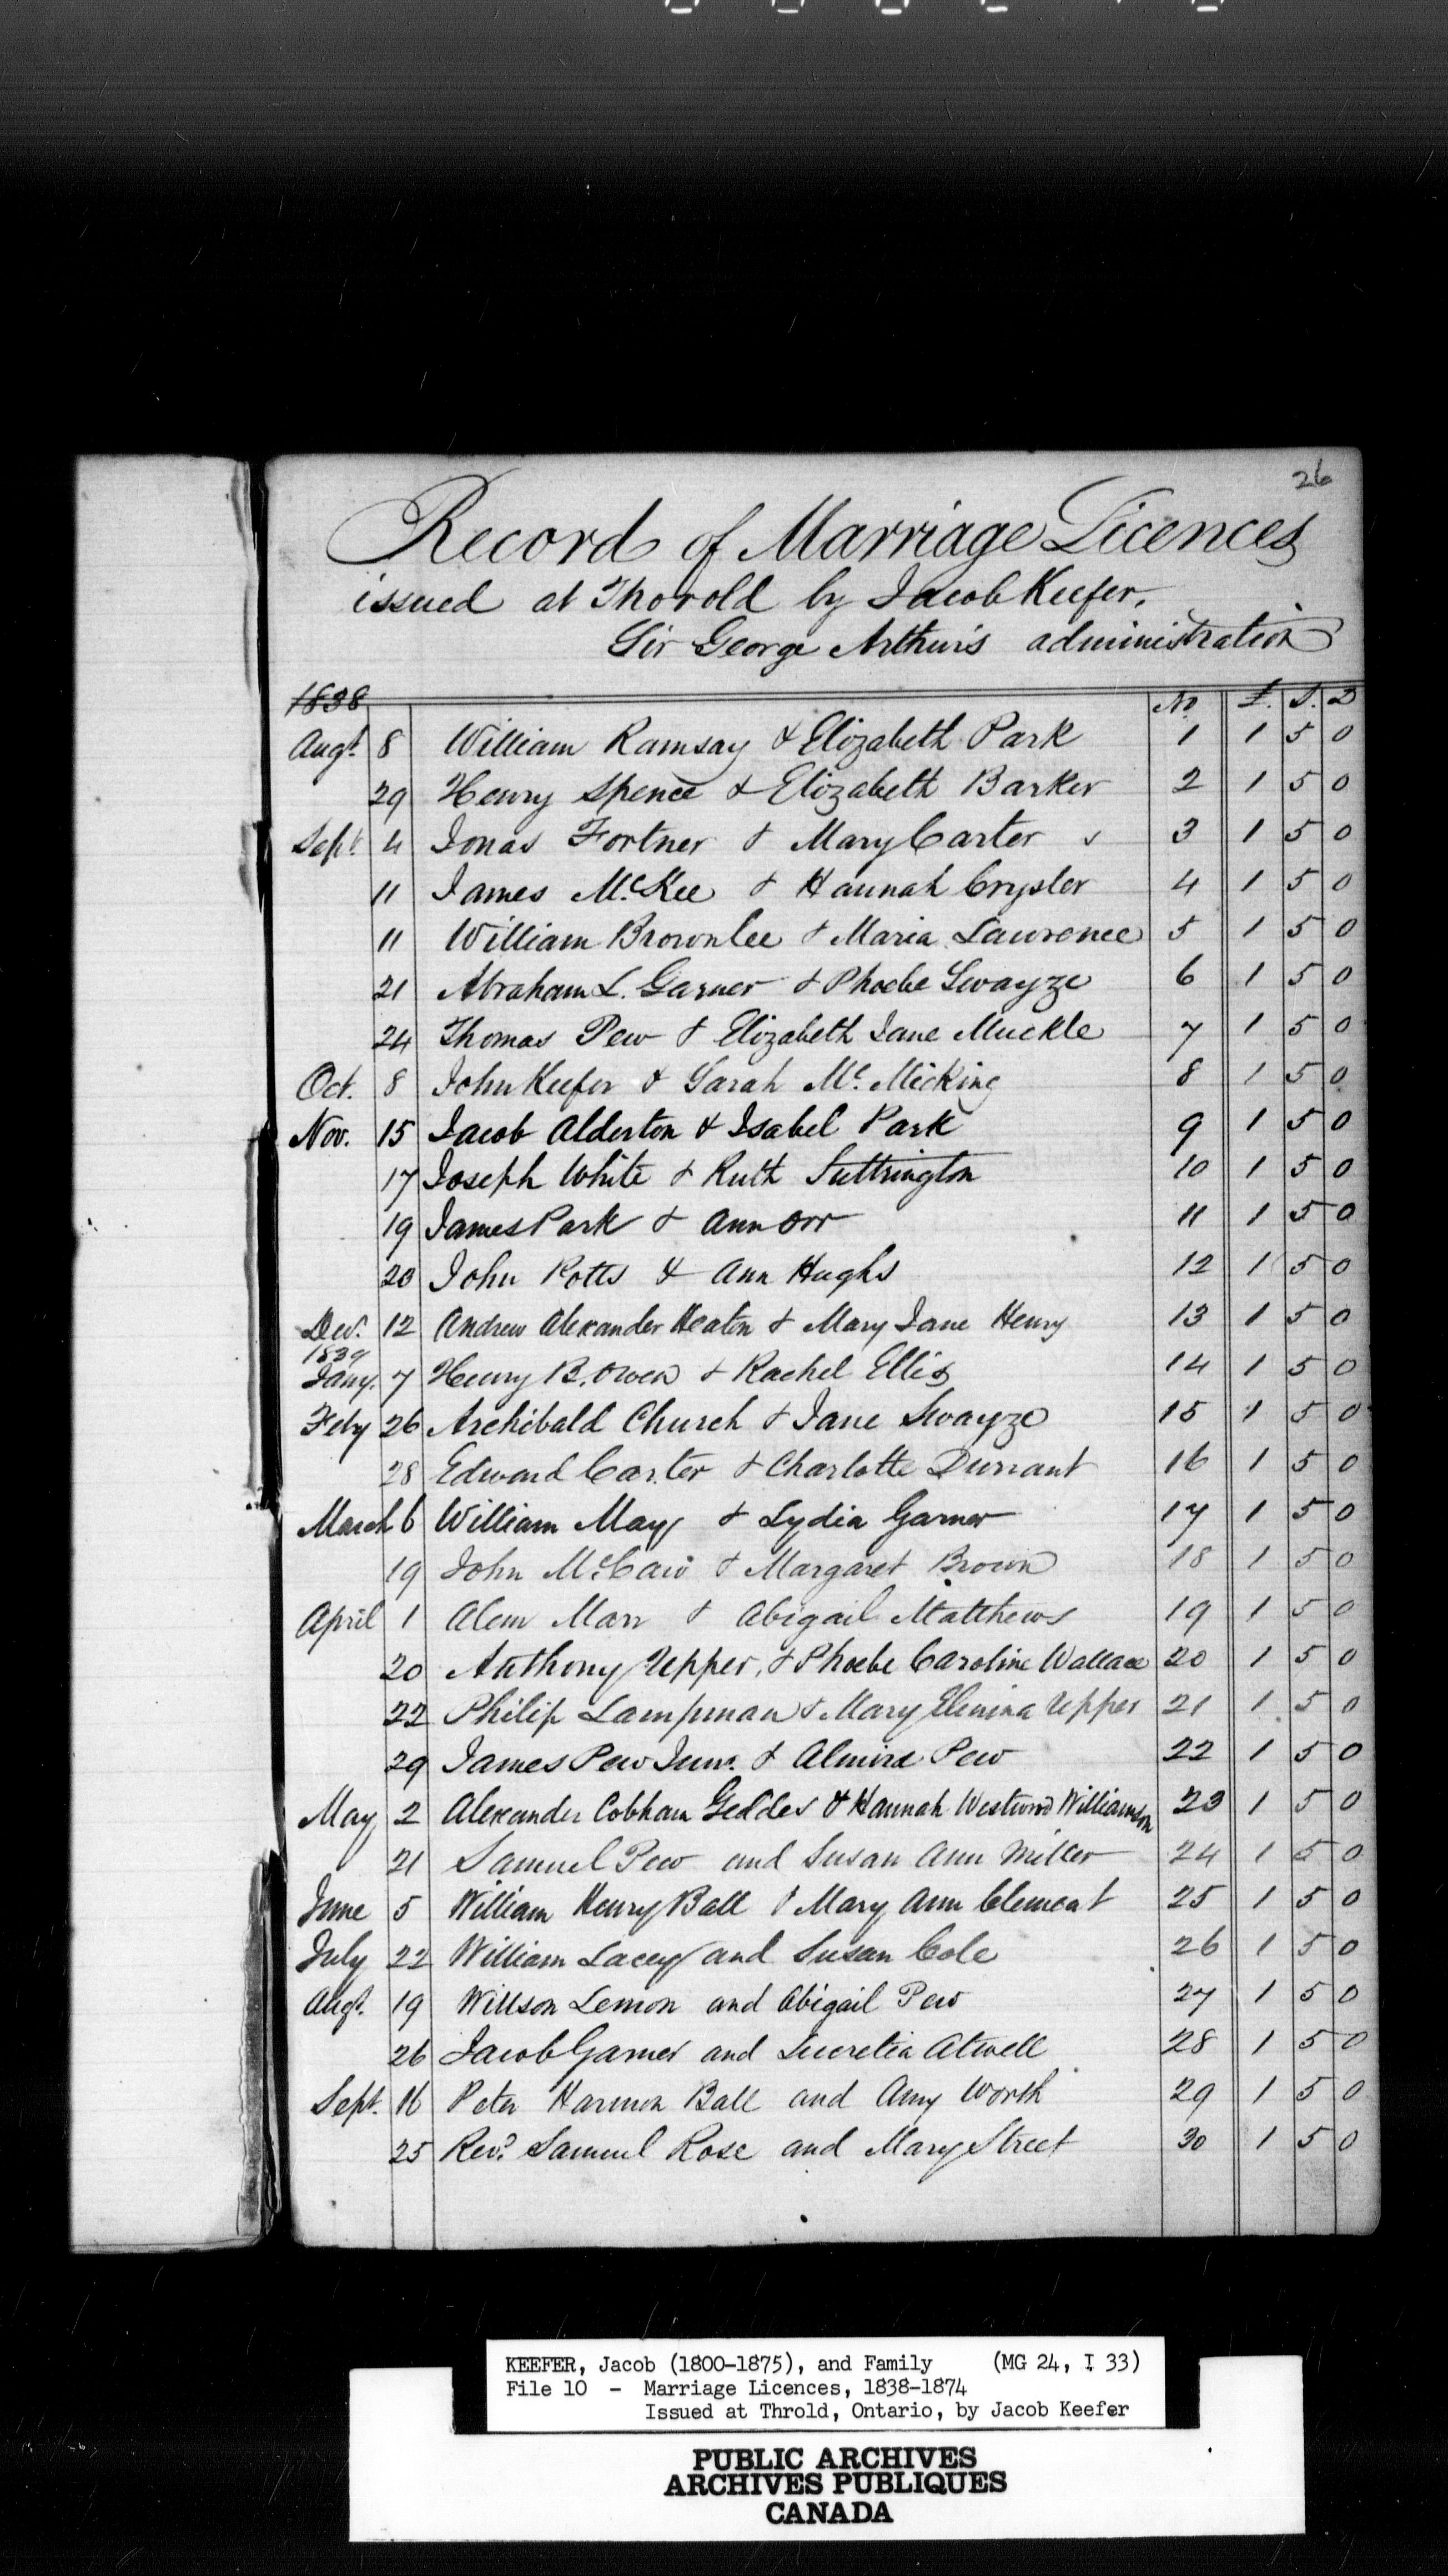 26
Record of Marriage Licences
issued at Thorold by Jacob Keefer,
Sir George Arthur's administration
1838 No. £. S. D
Augt. 8 William Ramsay & Elizabeth Park 1 1 5 0
29 Henry Spence & Elizabeth Barker 2 1 5 0
Sept. 4 Jonas Fortner & Mary Carter 3 1 5 0
11 James McKee & Hannah Crysler 4 1 5 0
11 William Brownlee & Maria Lawrence 5 1 5 0
21 Abraham L. Garner & Phoebe Swayze 6 1 5 0
24 Thomas Pew & Elizabeth Jane Muckle 7 1 5 0
Oct. 8 John Keefer & Sarah Mc.Micking 8 1 5 0
Nov. 15 Jacob Alderton & Isabel Park 9 1 5 0
17 Joseph White & Ruth Suttrington 10 1 5 0
19 James Park & Ann Orr 11 1 5 0
20 John Potts & Ann Hughs 12 1 5 0
Dec. 12 Andrew Alexander Heaton & Mary Jane Henry 13 1 5 0
1839
Jany. 7 Henry B. Owen & Rachel Ellis 14 1 5 0
Feby 26 Archibald Church & Jane Swayze 15 1 5 0
28 Edward Carter & Charlotte Durrant 16 1 5 0
March 6 William May & Lydia Garner 17 1 5 0
19 John McCaw & Margaret Brown 18 1 5 0
April 1 Alem Marr & Abigail Matthews 19 1 5 0
20 Anthony Upper, & Phoebe Caroline Wallace 20 1 5 0
22 Philip Lampman & Mary Elmina Upper 21 1 5 0
29 James Pew Junr. & Almira Pew 22 1 5 0
May 2 Alexander Cobham Geddes & Hannah Westwood Williamson 23 1 5 0
21 Samuel Pew and Susan Ann Miller 24 1 5 0
June 5 William Henry Ball & Mary Ann Clement 25 1 5 0
July 22 William Lacey and Susan Cole 26 1 5 0
Augt. 19 Willson Lemon and Abigail Pew 27 1 5 0
26 Jacob Garner and Lucretia Atwell 28 1 5 0
Sept. 16 Peter Harmon Ball and Amy Worth 29 1 5 0
25 Revd. Samuel Rose and Mary Street 30 1 5 0
KEEFER, Jacob (1800-1875), and Family (MG 24, I 33)
File 10 - Marriage Licences, 1838-1874
Issued at Throld, Ontario, by Jacob Keefer
PUBLIC ARCHIVES
ARCHIVES PUBLIQUES
CANADA